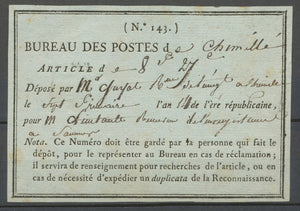 ( N.° 143. )
BUREAU DES POSTES de Chemillé
ARTICLE de 8 # 27
Déposé par M
le Sept Frimaire l'an de l'ère républicaine,
pour M
a Saumur
Nota. Ce Numéro doit être gardé par la personne qui fait le
dépôt, pour le représenter au Bureau en cas de réclamation ;
il servira de renseignement pour recherches de l'article, ou en
cas de nécessité d'expédier un duplicata de la Reconnaissance.